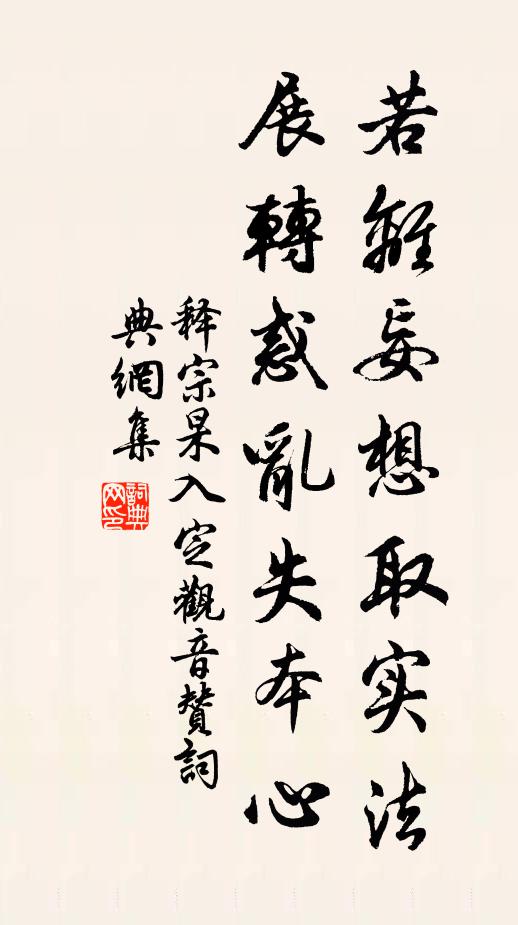 若離妄想取实法
展轉惑亂失本心
释宗杲入定觀音賛詞
典網集
詞典网印